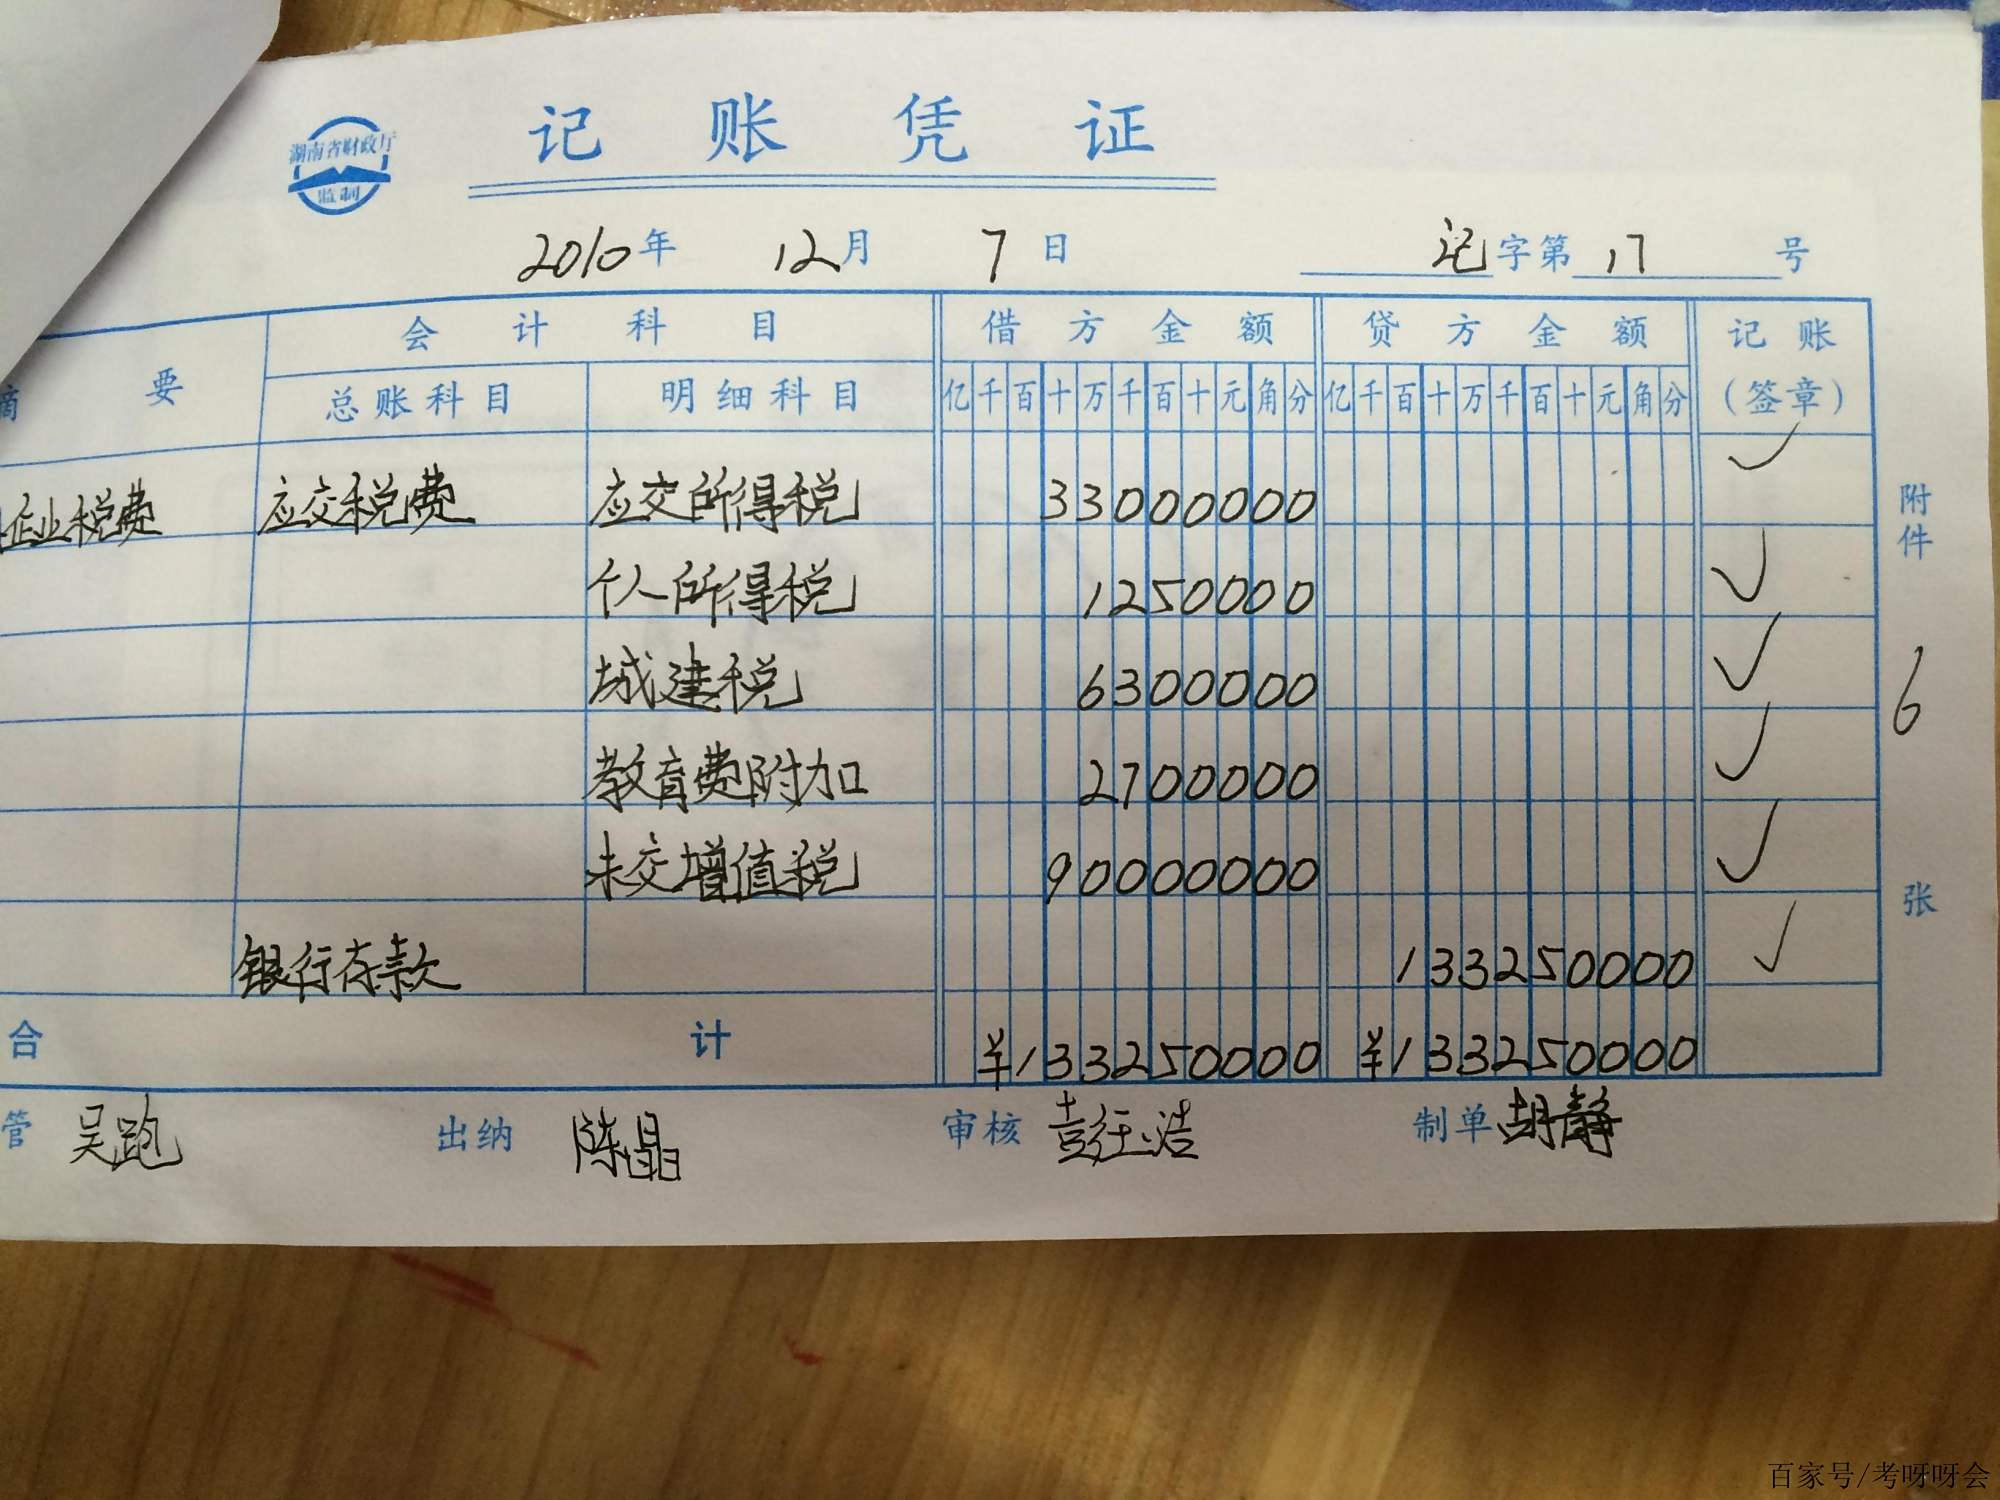 记账凭证
湖南省财政厅
监制
2010年 12月 7日 记字第 17 号
摘要 会计科目 借方金额 贷方金额 记账
总账科目 明细科目 亿千百十万千百十元角分 亿千百十万千百十元角分 (签章)
企业税费 应交税费 应交所得税 33000000 ✓
个人所得税 1250000 ✓
城建税 6300000 ✓
教育费附加 2700000 ✓
未交增值税 90000000 ✓
银行存款 133250000 ✓
合计 ¥133250000 ¥133250000
附件 6 张
管 吴跑 出纳 陈晶 审核 彭钰浩 制单 胡静
百家号/考呀呀会